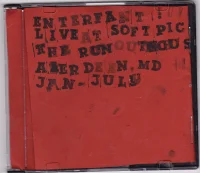 ENTERFAST
LIVE AT SOFT PIG
THE RUNOUTNOUS
ABERDEEN, MD
JAN-JULY